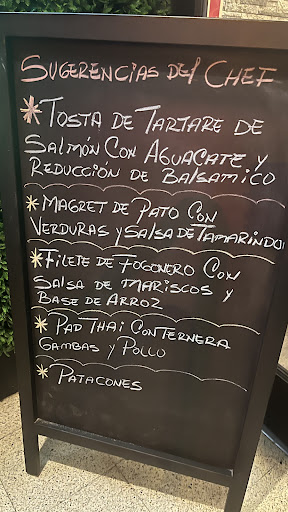 SUGERENCIAS DEL CHEF
* TOSTA DE TARTARE DE
SALMÓN CON AGUACATE Y
REDUCCIÓN DE BALSAMICO
* MAGRET DE PATO CON
VERDURAS Y SALSA DE TAMARINDO
* FILETE DE FOGONERO CON
SALSA DE MARISCOS Y
BASE DE ARROZ
* PAD THAI CON TERNERA
GAMBAS Y POLLO
* PATACONES